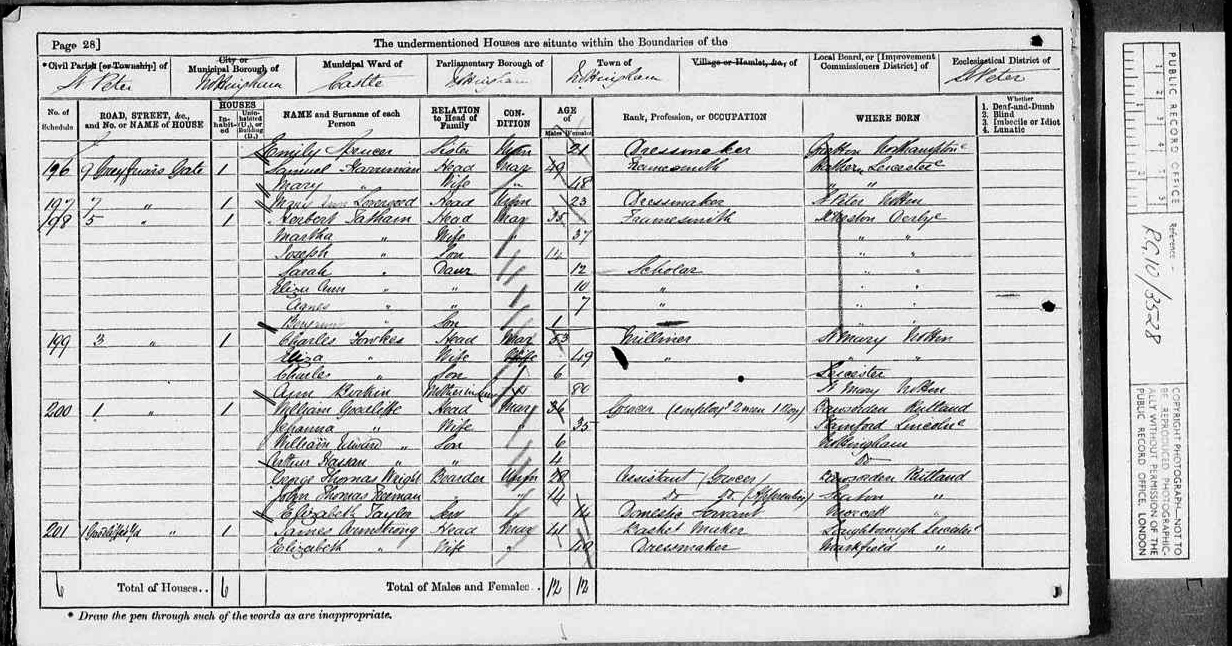 Page 28]
The undermentioned Houses are situate within the Boundaries of the
*Civil Parish [or Township] of
City or Municipal Borough of
Municipal Ward of
Parliamentary Borough of
Town of
Village or Hamlet, &c., of
Local Board, or [Improvement Commissioners District] of
Ecclesiastical District of
St Peter Nottingham Castle Nottingham Nottingham St Peter
No. of Schedule
ROAD, STREET, &c., and No. or NAME of HOUSE
HOUSES
In-habit-ed
Unin-habited (U.), or Building (B.)
NAME and Surname of each Person
RELATION to Head of Family
CON-DITION
AGE of
Males Females
Rank, Profession, or OCCUPATION
WHERE BORN
Whether
1. Deaf-and-Dumb
2. Blind
3. Imbecile or Idiot
4. Lunatic
Emily Spencer Sister Unm 21 Dressmaker
196 9 Greyfriars Gate 1 Samuel Head Mar 49 Framesmith Leicestre
Mary " Wife " 48 " "
197 7 " 1 Mary Ann Head Unm 23 Dressmaker St Peter Nottm
198 5 " 1 Herbert Tatham Head Mar 35 Framesmith Derbye
Martha " Wife " 37 " "
Joseph " Son 14 " "
Sarah " Daur 12 Scholar " "
Eliza Ann " " 10 " " "
Agnes " " 7 " " "
Benjamin " Son 1 "
199 3 " 1 Charles Fowkes Head Mar 53 Milliner St Mary Nottm
Eliza " Wife 49 " " "
Charles " Son 6 Leicester
Ann Birkin Mother in law 80 St Mary Nottm
200 1 " 1 William Goodliffe Head Mar 36 Grocer (employs 2 men 1 Boy) Rutland
Johanna " Wife " 35 Stamford Lincolne
William Edward " Son 6 Nottingham
Arthur Hassan " " 4 Do
George Thomas Wright Boarder Unm 28 Assistant (Grocer) Rutland
John Thomas Freeman " " 14 Do Do (Apprentice) Seaton "
Elizabeth Taylor Serv " 14 Domestic Servant Morcott "
201 1 " 1 James Armstrong Head Mar 41 Basket Maker Loughborough Leicestre
Elizabeth " Wife " 40 Dressmaker Markfield "
6 Total of Houses.. 6 Total of Males and Females.. 12 12
* Draw the pen through such of the words as are inappropriate.
PUBLIC RECORD OFFICE
Reference :-
RG10/3528
COPYRIGHT PHOTOGRAPH—NOT TO BE REPRODUCED PHOTOGRAPHICALLY WITHOUT PERMISSION OF THE PUBLIC RECORD OFFICE, LONDON